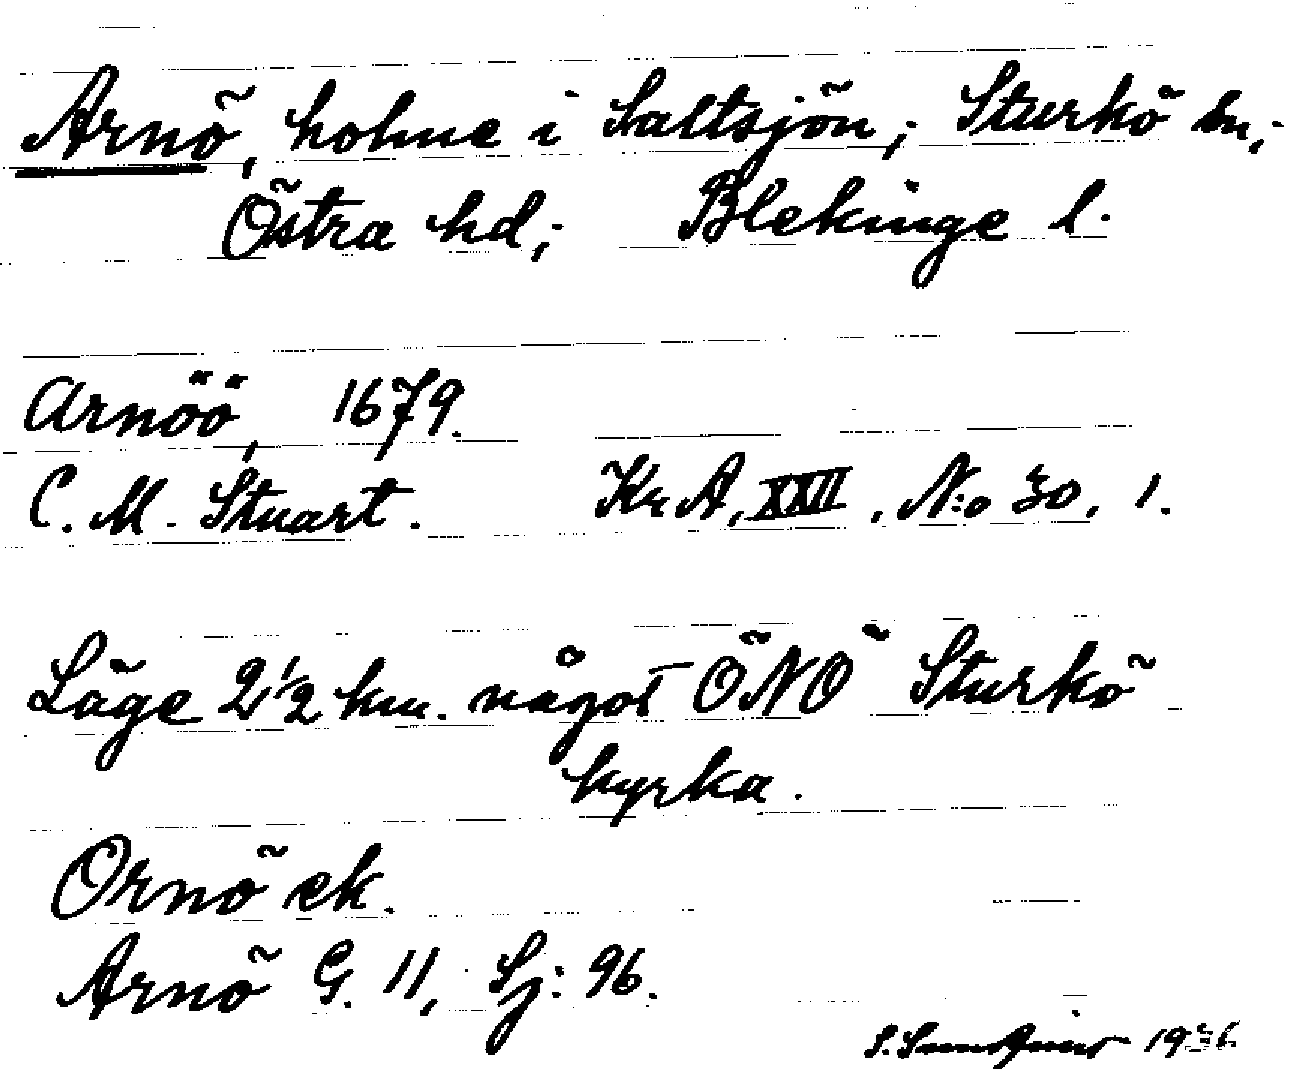 Arnö, holme i Saltsjön; Sturkö sn;
Östra hd; Blekinge l.
Arnöö, 1679.
C. M. Stuart. Kr A, XXII, N:o 30, 1.
Läge 2 1/2 km. något ÖNO Sturkö
kyrka.
Ornö ek.
Arnö G. 11, Sj: 96.
S. 1936